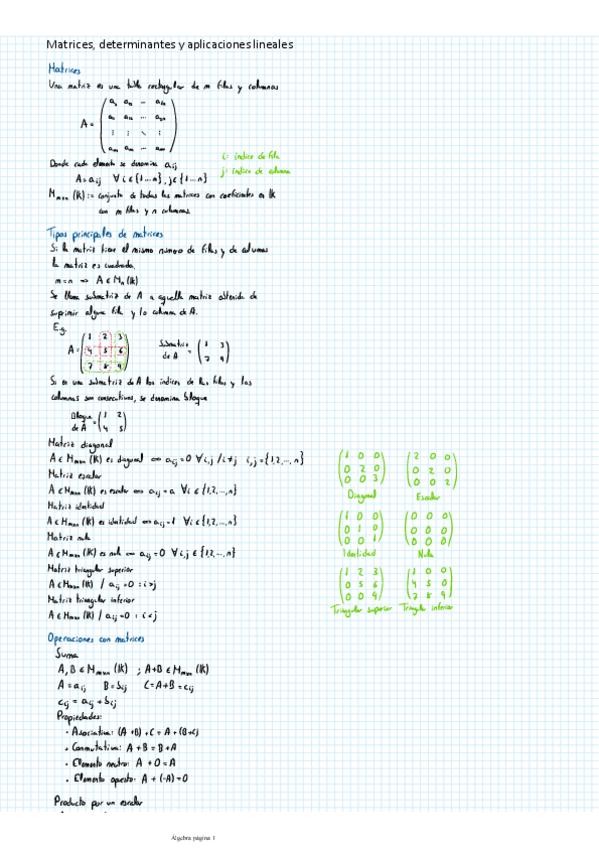 Matrices, determinantes y aplicaciones lineales
Matrices
Una matriz es una tabla rectangular de m filas y columnas
A =
Donde cada elemento se denomina aij
i = índice de fila
j = índice de columna
A = aij ∀ i ∈ {1...n}, j ∈ {1...n}
Mmxn (K) := conjunto de todas las matrices con coeficientes en K
con m filas y n columnas.
Tipos principales de matrices
Si la matriz tiene el mismo número de filas y de columas
la matriz es cuadrada.
m=n => A ∈ Mn (K)
Se llama submatriz de A a aquella matriz obtenida de
suprimir alguna fila y/o columna de A.
E.g.
A = (1 2 3
4 5 6
7 8 9)
Submatriz de A = (1 3
7 9)
Si en una submatriz de A los índices de las filas y las
columnas son consecutivos, se denomina bloque
Bloque de A = (1 2
4 5)
Matriz diagonal
A ∈ Mmxn (K) es diagonal <=> aij = 0 ∀ i,j / i≠j i,j = {1,2,...,n}
Matriz escalar
A ∈ Mmxn (K) es escalar <=> aij = a ∀ i ∈ {1,2,...,n}
Matriz identidad
A ∈ Mmxn (K) es identidad <=> aij = 1 ∀ i ∈ {1,2,...,n}
Matriz nula
A ∈ Mmxn (K) es nula <=> aij = 0 ∀ i,j ∈ {1,2,...,n}
Matriz triangular superior
A ∈ Mmxn (K) / aij = 0 : i > j
Matriz triangular inferior
A ∈ Mmxn (K) / aij = 0 : i < j
(1 0 0
0 2 0
0 0 3)
Diagonal
(2 0 0
0 2 0
0 0 2)
Escalar
(1 0 0
0 1 0
0 0 1)
Identidad
(0 0 0
0 0 0
0 0 0)
Nula
(1 2 3
0 5 6
0 0 9)
Triangular superior
(1 0 0
4 5 0
7 8 9)
Triangular inferior
Operaciones con matrices
Suma
A, B ∈ Mmxn (K) ; A+B ∈ Mmxn (K)
A = aij B = bij C = A+B = cij
cij = aij + bij
Propiedades:
· Asociativa: (A+B)+C = A+(B+C)
· Conmutativa: A+B = B+A
· Elemento neutro: A+0 = A
· Elemento opuesto: A+(-A) = 0
Producto por un escalar
Álgebra página 1